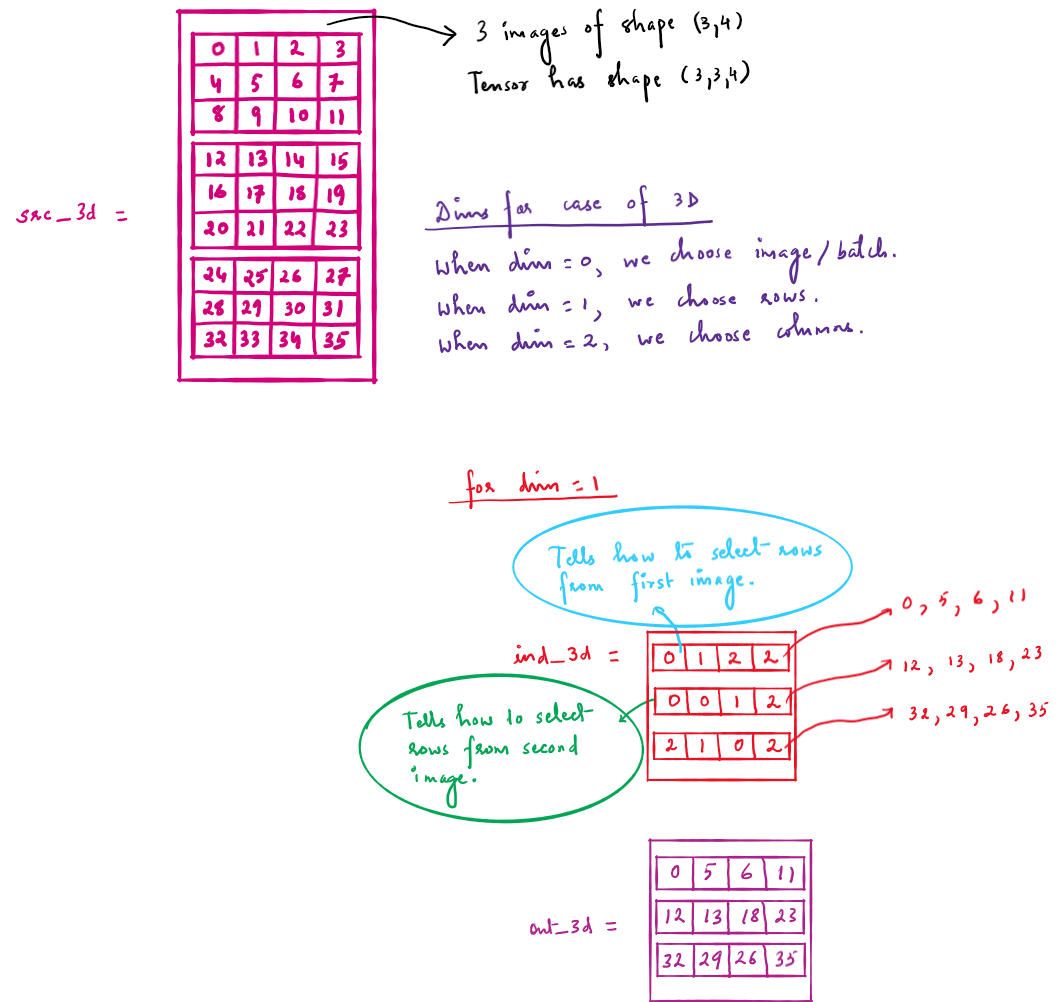 3 images of shape (3,4)
Tensor has shape (3,3,4)
0 1 2 3
4 5 6 7
8 9 10 11
12 13 14 15
16 17 18 19
20 21 22 23
24 25 26 27
28 29 30 31
32 33 34 35
src_3d =
Dims for case of 3D
When dim = 0, we choose image/batch.
When dim = 1, we choose rows.
When dim = 2, we choose columns.
for dim = 1
Tells how to select rows
from first image.
ind_3d =
0 1 2 2
0 0 1 2
2 1 0 2
0, 5, 6, 11
12, 13, 18, 23
32, 29, 26, 35
Tells how to select
rows from second
image.
out_3d =
0 5 6 11
12 13 18 23
32 29 26 35